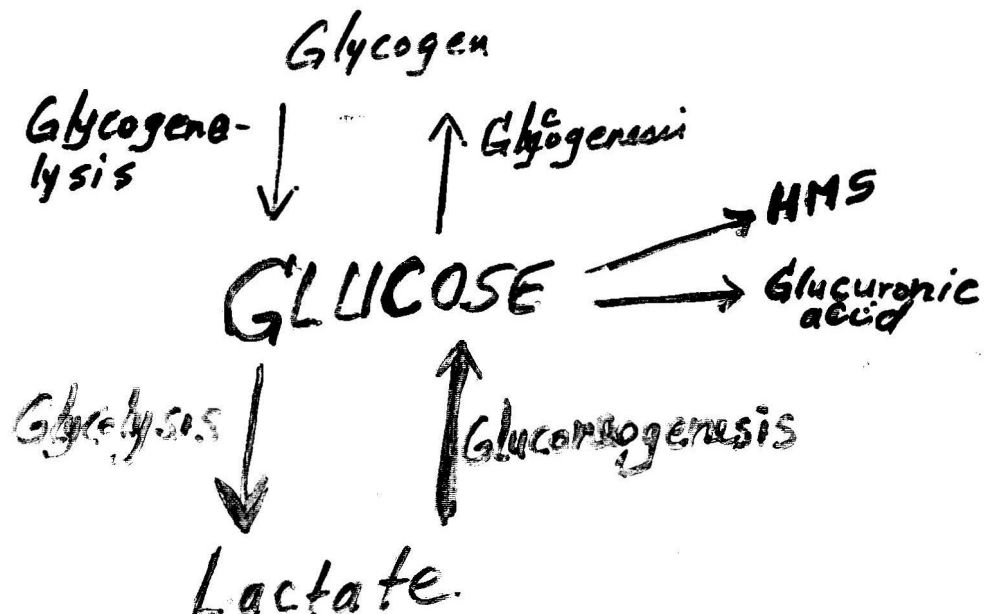 Glycogen
Glycogene-
lysis
Glycogenesis
HMS
GLUCOSE
Glucuronic
acid
Glycolysis
Gluconeogenesis
Lactate.